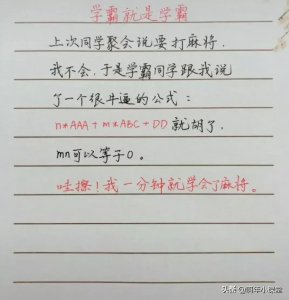 学霸就是学霸
上次同学聚会说要打麻将.
我不会,于是学霸同学跟我说
了一个很牛逼的公式:
n*AAA+m*ABC+DD 就胡了.
mn可以等于0。
哇擦!我一分钟就学会了麻将。
头条@阿年小课堂